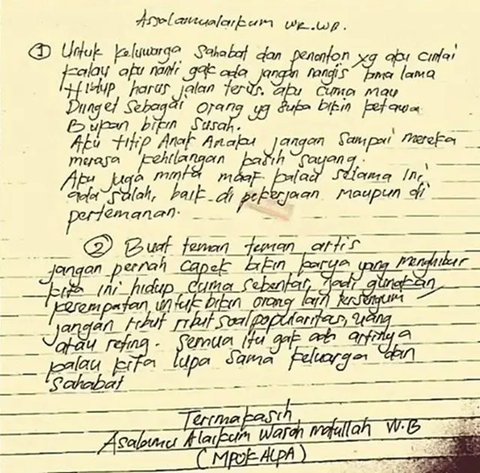 Assalamualaikum WR.WB.
① Untuk keluwarga sahabat dan penonton yg apu cintai
kalau apu nanti gak ada jangan nangis lama lama
Hidup harus jalan terus. apu cuma mau
Diinget sebagai orang yg suba bikin petawa
Bupan bikin susah.
Apu titip Anak Anapu jangan sampai mereka
merasa kehilangan pasih sayang.
Apu juga minta maaf palau selama ini,
ada salah, baik di pekerjaan maupun di
pertemanan.
② Buat teman teman artis
jangan pernah capek bikin parya yang menghibur
kita ini hidup cuma sebentar, jadi gunakan
pesempatan untuk bikin orang lain tersenyum
jangan ribut ribut soal popularitas, uang
atau reting. Semua itu gak ada artinya
palau kita lupa sama keluarga dan
sahabat
Terimapasih
Asalamu Alaikum Warah matullah W.B
(MPOK ALPA)